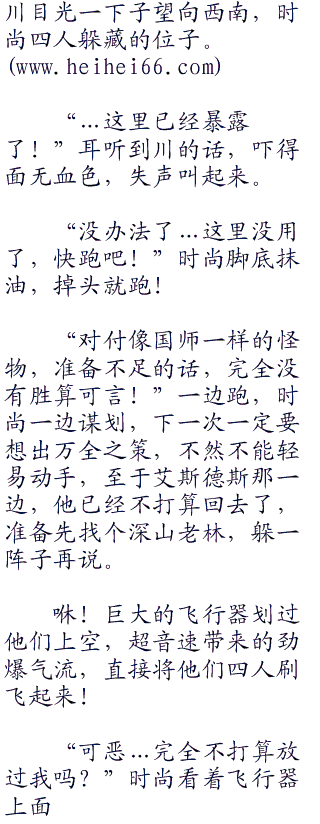 川目光一下子望向西南，时
尚四人躲藏的位子。
(www.heihei66.com)
“…这里已经暴露
了！”耳听到川的话，吓得
面无血色，失声叫起来。
“没办法了…这里没用
了，快跑吧！”时尚脚底抹
油，掉头就跑！
“对付像国师一样的怪
物，准备不足的话，完全没
有胜算可言！”一边跑，时
尚一边谋划，下一次一定要
想出万全之策，不然不能轻
易动手，至于艾斯德斯那一
边，他已经不打算回去了，
准备先找个深山老林，躲一
阵子再说。
咻！巨大的飞行器划过
他们上空，超音速带来的劲
爆气流，直接将他们四人刷
飞起来！
“可恶…完全不打算放
过我吗？”时尚看着飞行器
上面